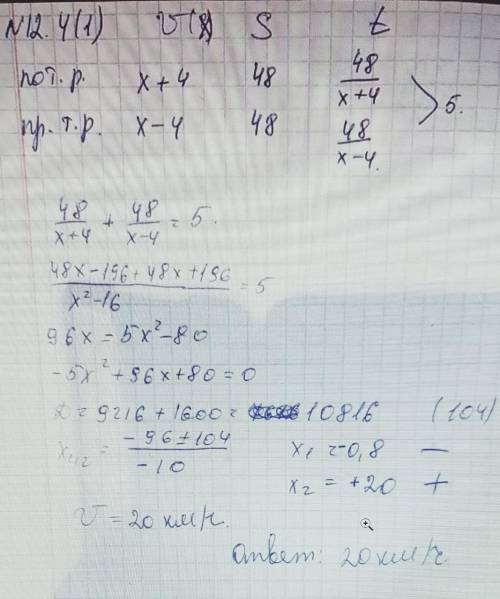 N12.4(1) V(x) S t
по т. р. x+4 48 48/(x+4)
пр. т. р. x-4 48 48/(x-4) > 5.
48/(x+4) + 48/(x-4) = 5.
(48x-196+48x+196)/(x²-16) = 5
96x = 5x²-80
-5x²+96x+80=0
D = 9216+1600 = 10816 (104)
x₁,₂ = (-96±104)/(-10) x₁ = -0,8 —
x₂ = +20 +
V = 20 км/ч.
Ответ: 20 км/ч